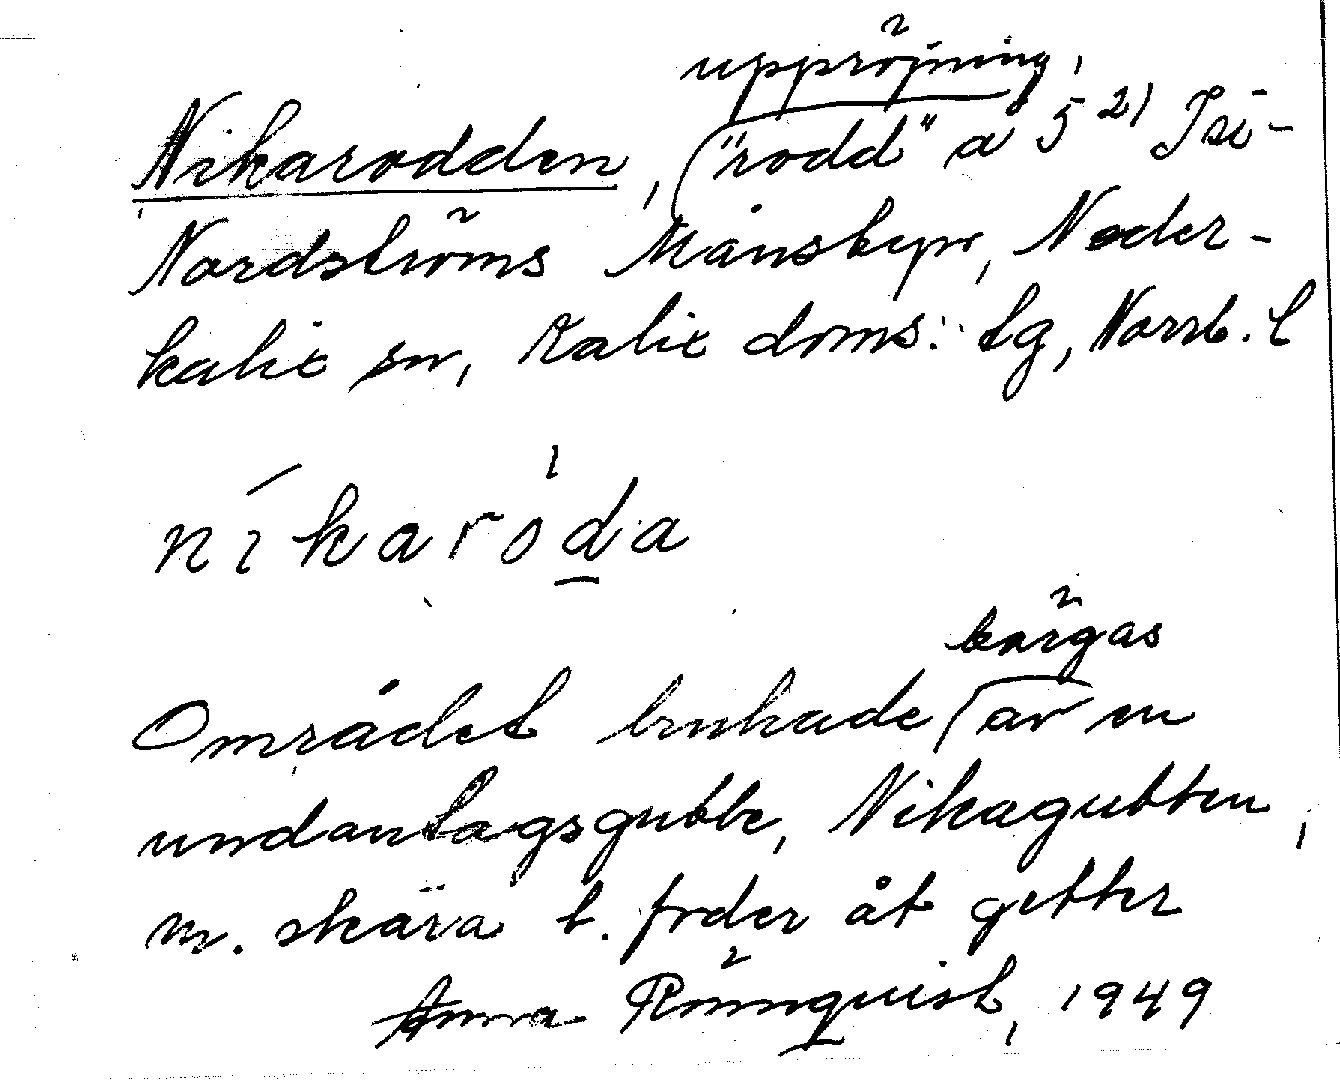 uppröjning,
Nikarodden, ("rodd" å 5 21) Isi-
Nordströms Månsbyn, Neder-
kalix sn, Kalix doms: lg, Norrb. l
níkaróda
bärgas
Området brukade (av en
undantagsgubbe, Nikagubben,
m. skära t. foder åt getter
Anna Rönnquist, 1949